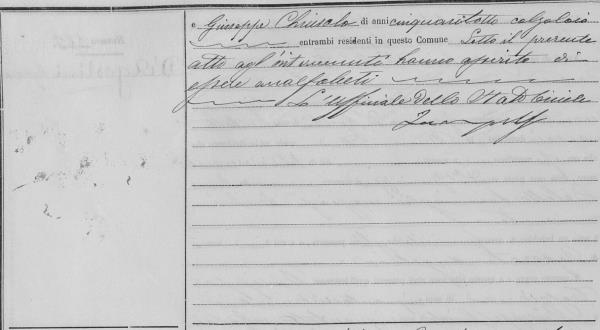 e Giuseppe Chiuselo di anni cinquantotto calzolaio
entrambi residenti in questo Comune Letto il presente
atto agl'intervenuti hanno asserito di
essere analfabeti
L'Uffiziale dello Stato Civile